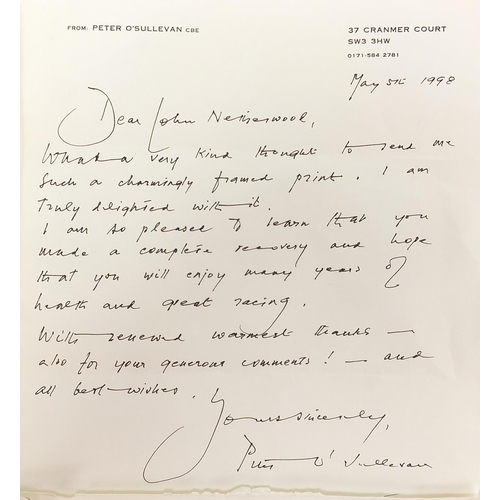 FROM: PETER O'SULLEVAN CBE
37 CRANMER COURT
SW3 3HW
0171-584 2781
May 5th 1998
Dear John Netherwood,
What a very kind thought to send me
such a charmingly framed print. I am
truly delighted with it.
I am so pleased to learn that you
made a complete recovery and hope
that you will enjoy many years of
health and great racing.
With renewed warmest thanks —
also for your generous comments! — and
all best-wishes.
Yours sincerely,
Peter O'Sullevan